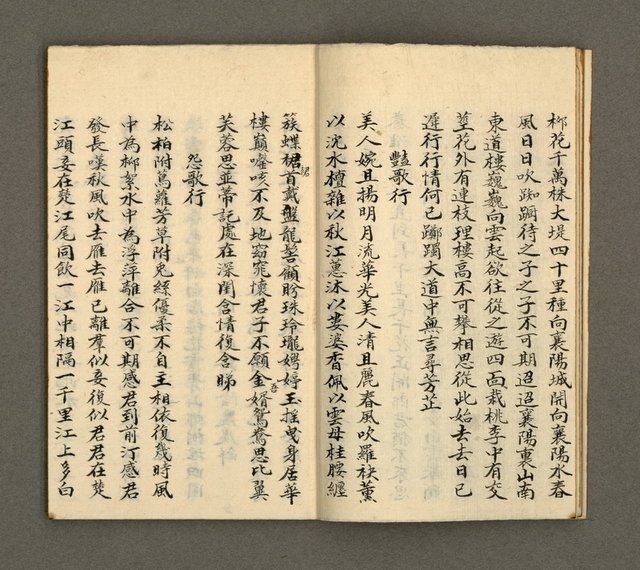 柳花千萬株大堤四十里種向襄陽城開向襄陽水春
風日日吹踟躕待之子之子不可期迢迢襄陽裏山南
東道樓巍巍向雲起欲往從之遊四面栽桃李中有交
莖花外有連枝理樓高不可攀相思從此始去去日已
遲行行情何已躑躅大道中無言尋芳芷
豔歌行
美人婉且揚明月流華光美人清且麗春風吹羅袂薰
以沈水檀雜以秋江蕙沐以婆婆香佩以雲母桂腰纏
簇蝶裙首戴盤龍髻顧盼珠玲瓏娉婷玉搖曳身居華
樓巔嚏咳不及地窈窕懷君子不願金壻鴛鴦思比翼
芙蓉思並蒂託處在深閨含情復含睇
怨歌行
松柏附蔦蘿芳草附兔絲優柔不自主相依復幾時風
中為柳絮水中為浮萍離合不可期感君到前汀感君
發長嘆秋風吹去雁去雁已離羣似妾復似君君在楚
江頭妾在楚江尾同飲一江中相隔一千里江上多白